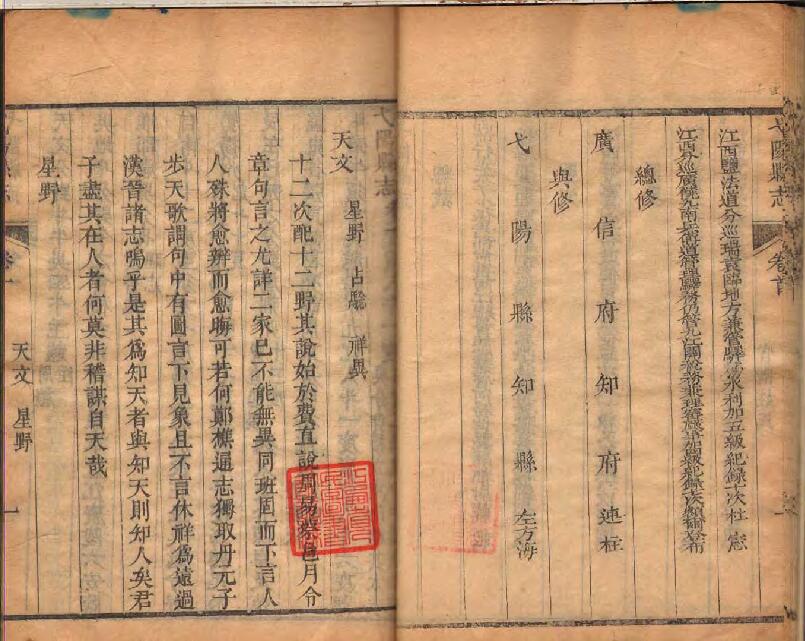 弋陽縣志
卷首
江西鹽法道分巡瑞袁臨地方兼管驛傳水利加五級紀錄十次杜憲
江西分巡廣饒九南兵備道管理驛務仍管九江關
總修
廣信府知府連柱
與修
弋陽縣知縣左方海
天文 星野 占驗 祥異
十二次配十二野其說始於費直說周易蔡邕月令
章句言之尤詳二家已不能無異同班固而下言人
人殊將愈辨而愈晦可若何鄭樵通志獨取丹元子
步天歌謂句中有圖言下見象且不言休祥為遠過
漢晉諸志嗚乎是其為知天者與知天則知人矣君
子盡其在人者何莫非稽謀自天哉
星野
卷一
天文 星野
一